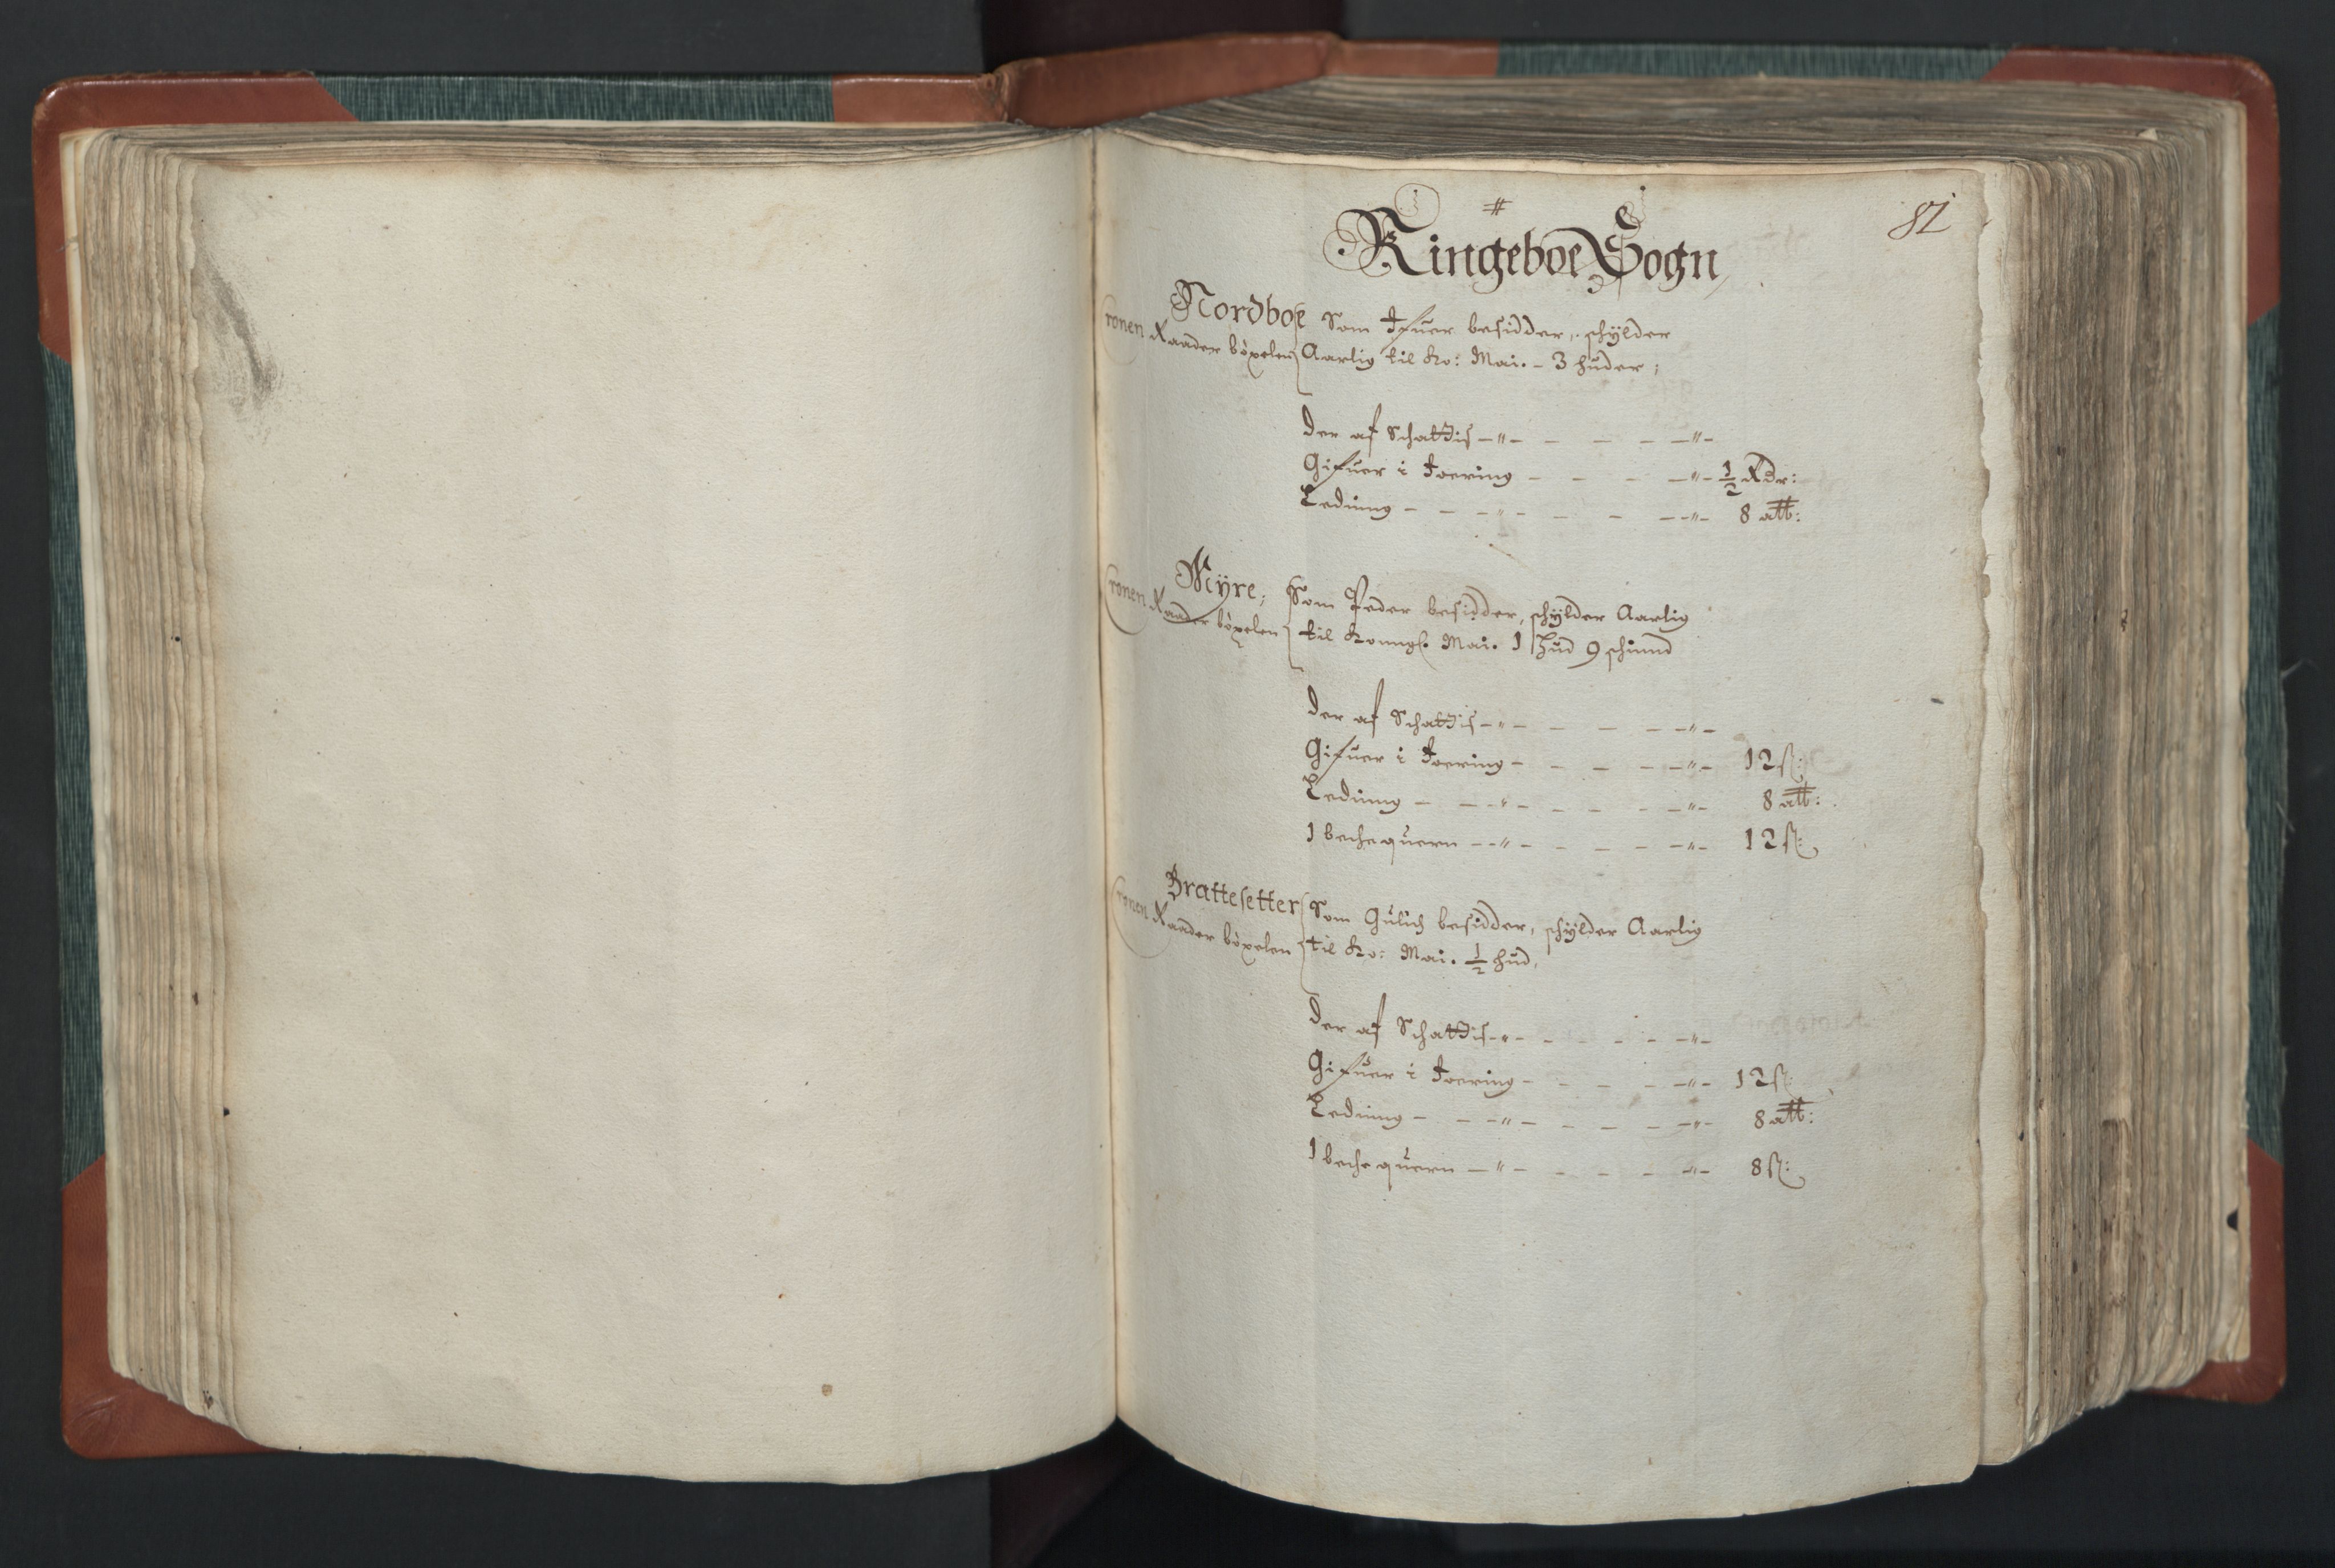 81
Ringeboe Sogn
Nordboe Som Ifuer besidder, schÿlder
Cronen Raader böxelen Aarlig til Ko: Mai. - 3 huder;
Der af Schattis - " - - - - - " -
Gifuer i Foering - - - - " - 1/2 Rdr:
Leding - - - " - - - - " - 8 alb:
Mÿre; Som Peder besidder, schÿlder Aarlig
Cronen Raader böxelen til Konngl. Mai. 1 Hud 9 schinnd
Der af Schattis - " - - - - - " -
Gifuer i Foering - - - - - " - 12 ß:
Leding - - - " - - - - - " - 8 alb:
1 beche quern - - " - - - - - " - 12 ß:
Brattesetter Som Gulich besidder, schÿlder Aarlig
Cronen Raader böxelen til Ko: Mai. 1/2 hud,
Der af Schattis - " - - - - - " -
Gifuer i Foering - - - - " - 12 ß:
Leding - - - " - - - - " - 8 alb:
1 beche quern - " - - - - - " - 8 ß: